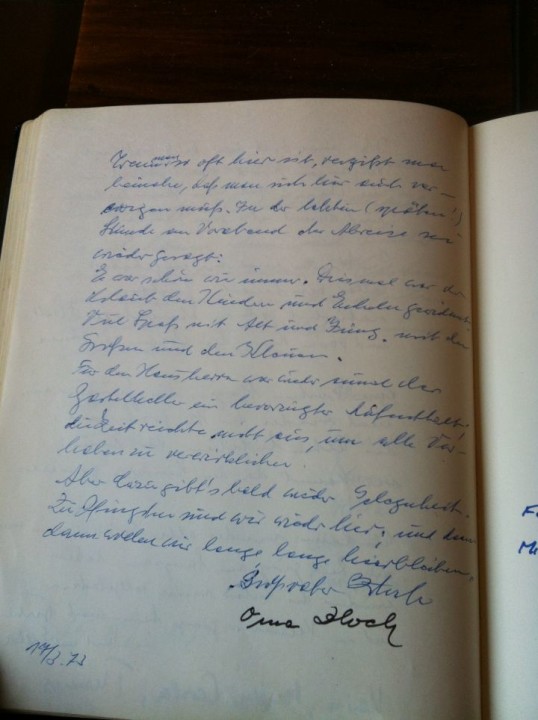 Wenn man so oft hier ist, vergißt man
beinahe, daß man sich hier auch ver-
ewigen muß. In der letzten (späten!)
Stunde am Vorabend der Abreise sei
wieder gesagt:
Es war schön wie immer. Diesmal war der
Urlaub den Kindern und Enkeln gewidmet.
Viel Spaß mit Alt und Jung, mit den
Großen und den Kleinen.
Für den Hausherrn war wieder einmal der
ein bevorzugter Aufenthalt,
die Zeit reichte nicht aus, um alle Vor-
haben zu verwirklichen.
Aber dazu gibt's bald wieder Gelegenheit.
Zu Pfingsten sind wir wieder hier, und dann
dann wollen wir lange lange hierbleiben.
Oma Bloch
73
F
M